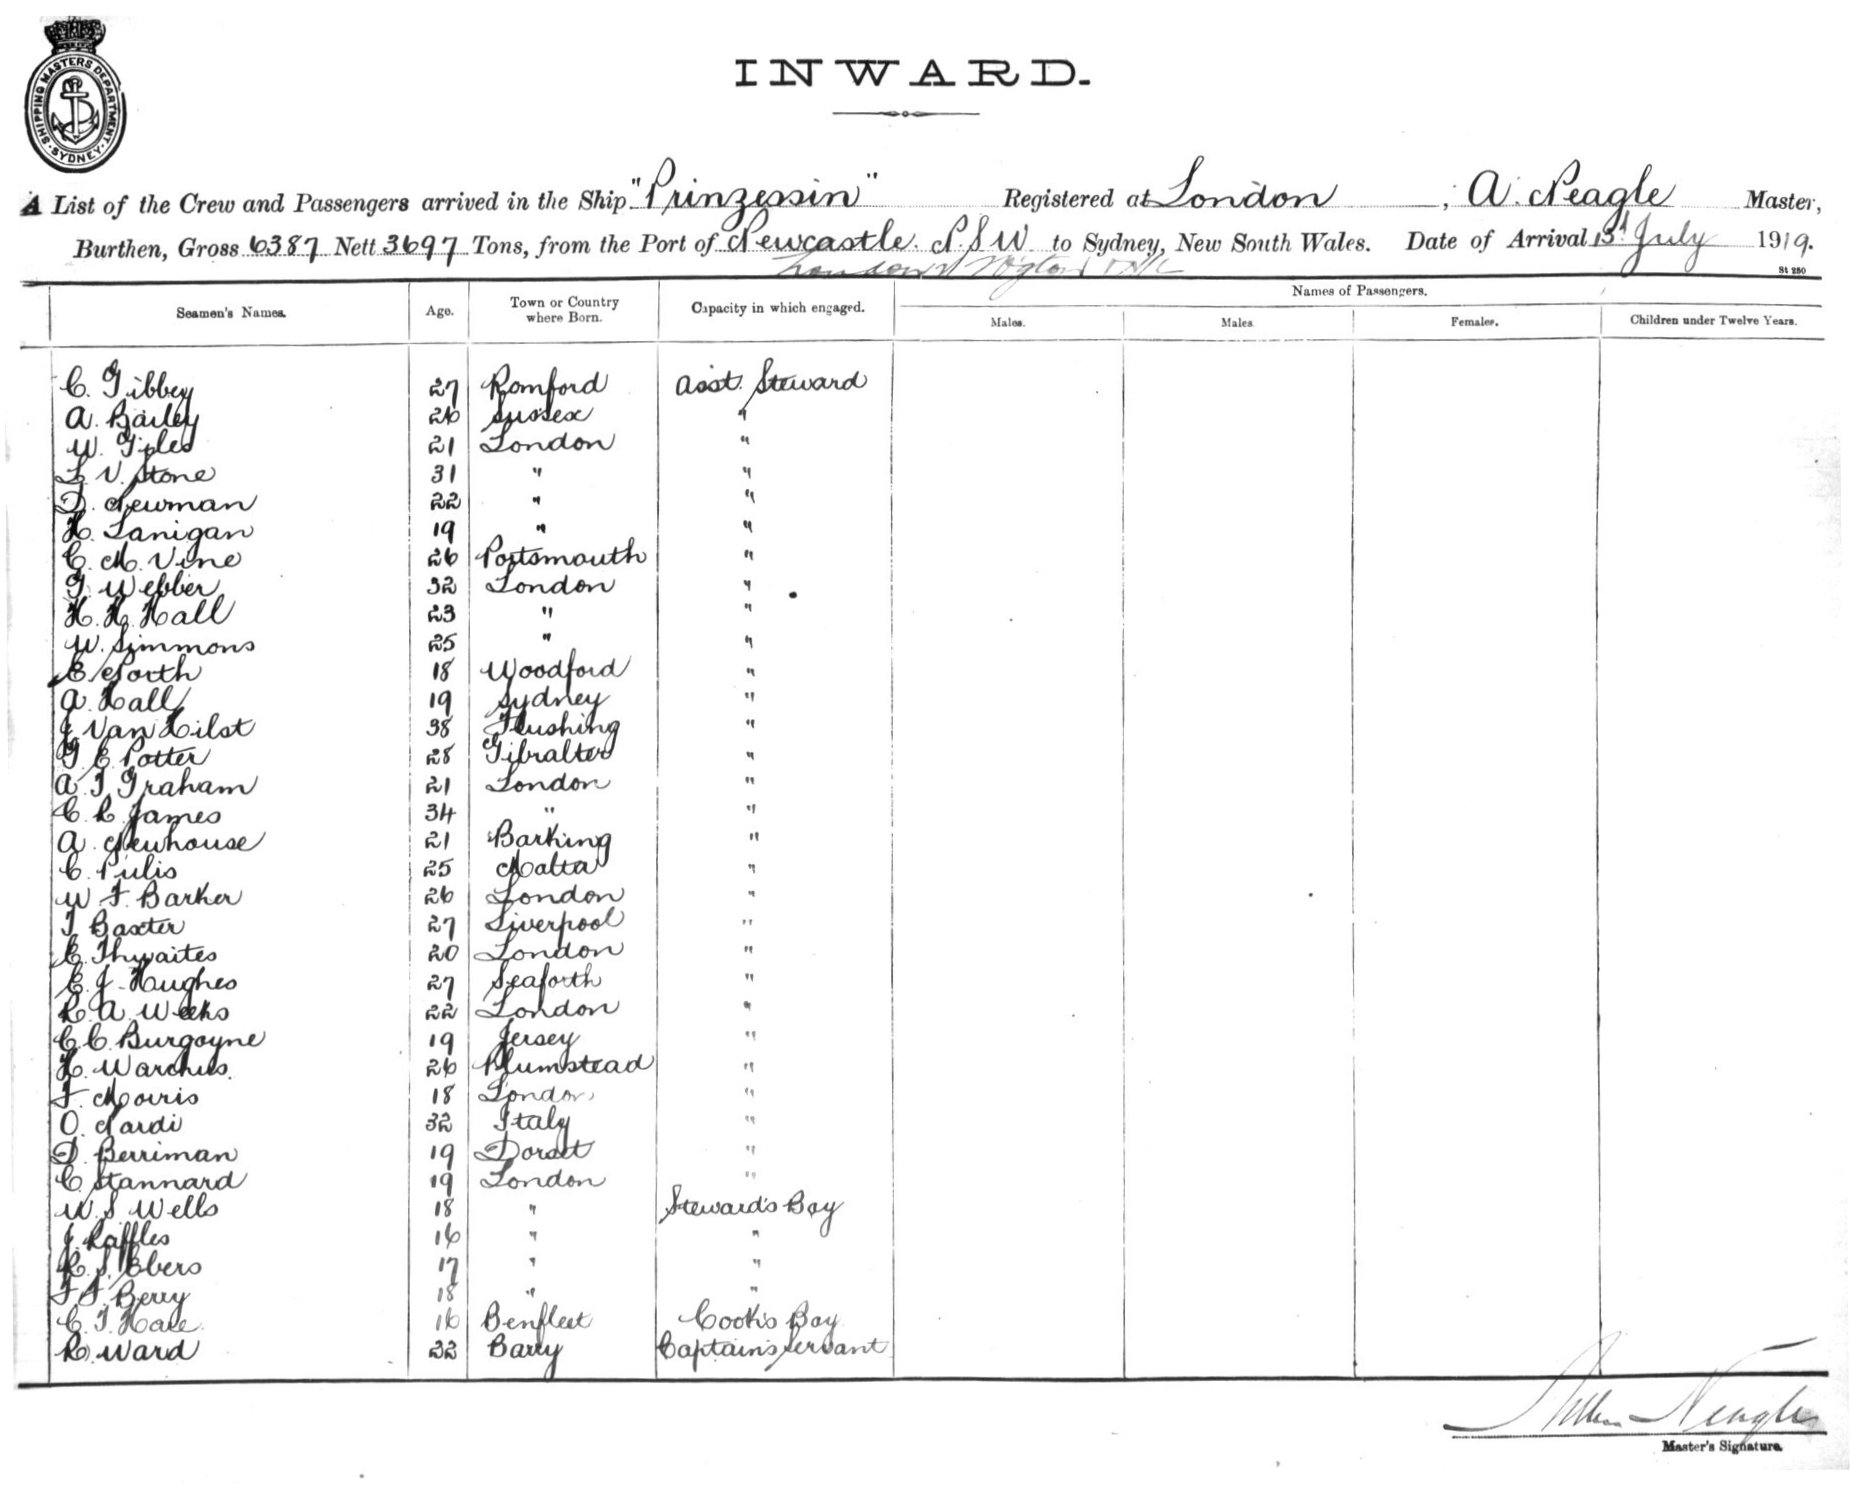 SHIPPING MASTERS DEPARTMENT. SYDNEY
INWARD.
A List of the Crew and Passengers arrived in the Ship "Prinzessin" Registered at London, A. Neagle Master,
Burthen, Gross 6387 Nett 3697 Tons, from the Port of Newcastle. N.S.W. to Sydney, New South Wales. Date of Arrival July 1919.
London
St 280
Seamen's Names. Age. Town or Country where Born. Capacity in which engaged. Names of Passengers.
Males. Males Females. Children under Twelve Years.
C. Gibbey 27 Romford Asst. Steward
A. Bailey 26 Sussex "
W. Giples 21 London "
L. V. Stone 31 " "
D. Newman 22 " "
H. Lanigan 19 " "
C. M. Vine 26 Portsmouth "
G. Webber 32 London "
H. H. Hall 23 " "
W. Simmons 25 " "
E. North 18 Woodford "
A. Hall 19 Sydney "
J. Van Hilst 38 Flushing "
G. E. Potter 28 Gibralter "
A. T. Graham 21 London "
C. R. James 34 " "
A. Newhouse 21 Barking "
C. Pulis 25 Malta "
W. F. Barker 26 London "
T Baxter 27 Liverpool "
E. Thwaites 20 London "
E. J. Hughes 27 Seaforth "
R. A. Weeks 22 London "
C. C. Burgoyne 19 Jersey "
H. Warchus. 26 Plumstead "
F. Morris 18 London "
O. Nardi 32 Italy "
D. Berriman 19 Dorset "
C. Stannard 19 London "
W. S. Wells 18 " Steward's Boy
J. Raffles 16 " "
R. S. Ebers 17 " "
F. F. Berry 18 " "
C. T. Hare 16 Benfleet Cook's Boy
R. Ward 22 Barry Captain's Servant
Arthur Neagle
Master's Signature.